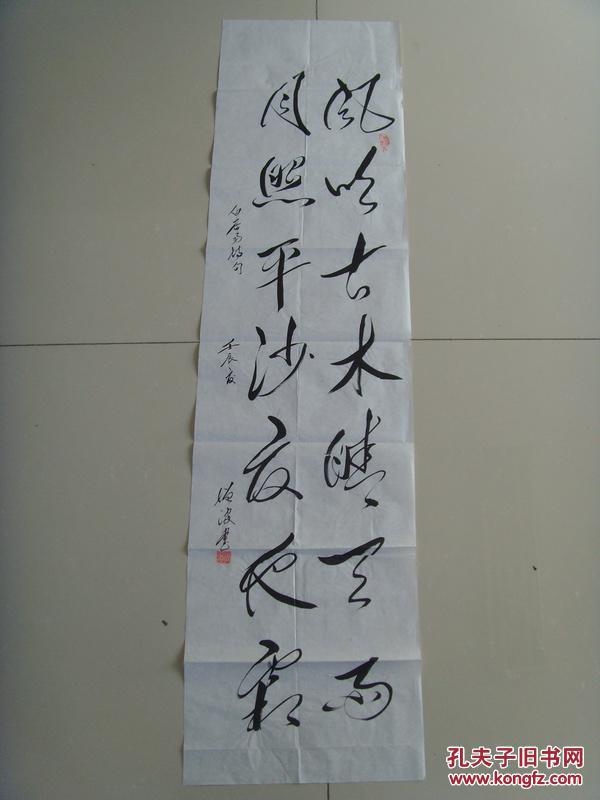 風吹古木晴天雨
月照平沙夏夜霜
白居易詩句
壬辰夏
波書
孔夫子旧书网
www.kongfz.com